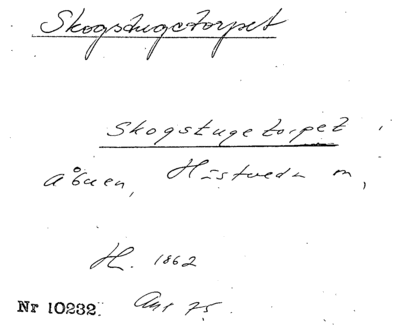 Skogstugetorpet
Skogstugetorpet
Åbuen, Hästveda m,
H. 1862
Nr 10232. Ans 75.